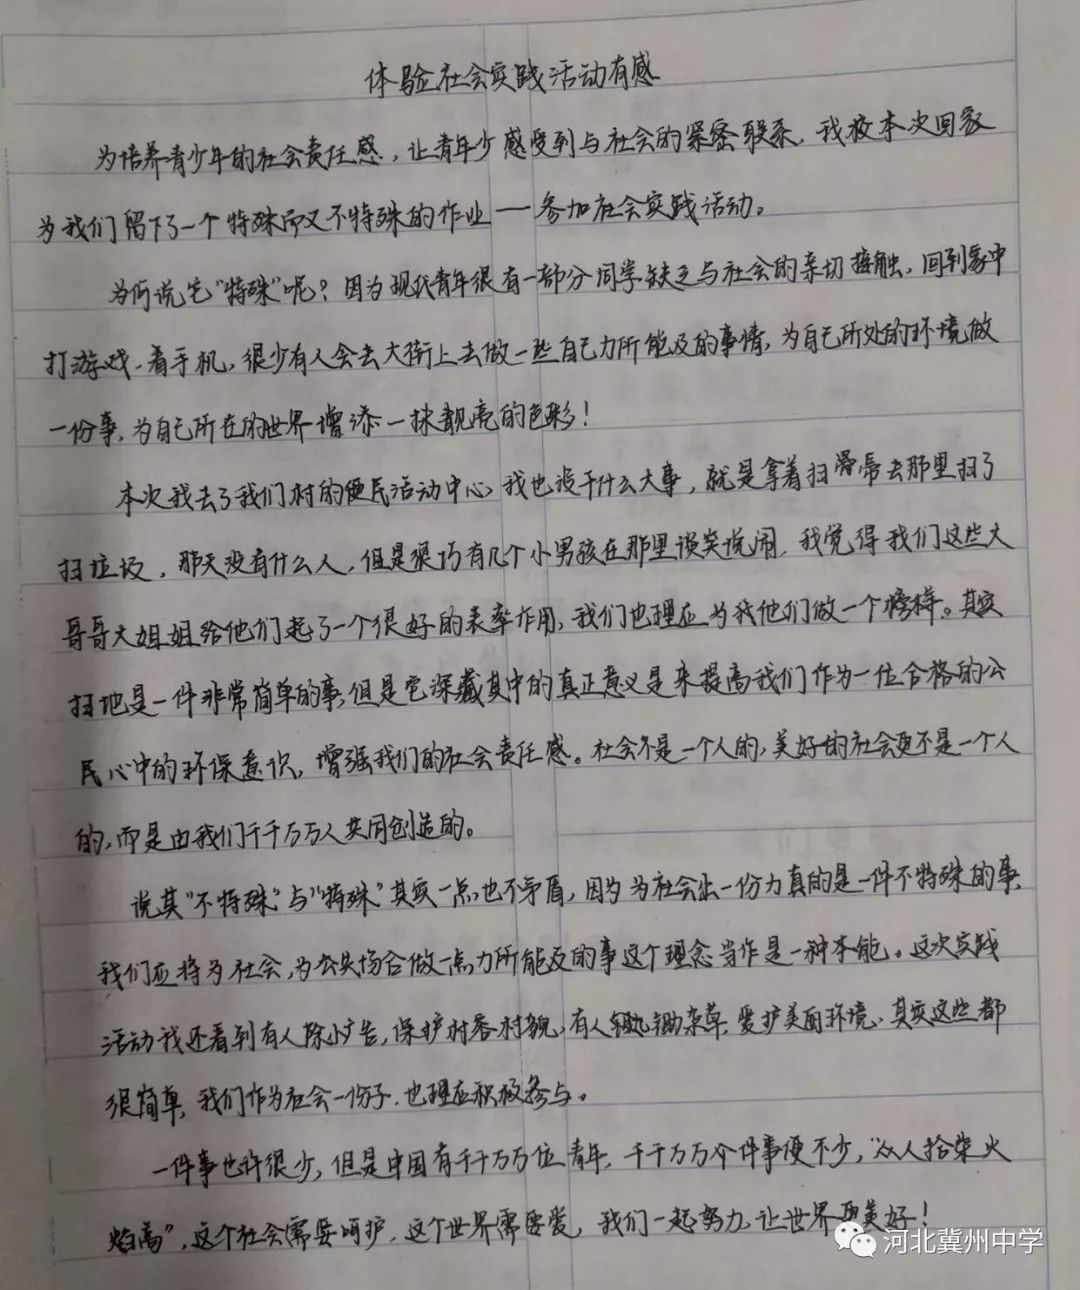 体验社会实践活动有感
为培养青少年的社会责任感，让青年少感受到与社会的紧密联系，我校本次回家
为我们留下了一个特殊而又不特殊的作业——参加社会实践活动。
为何说它“特殊”呢？因为现代青年很有一部分同学缺乏与社会的亲切接触，回到家中
打游戏、看手机，很少有人会去大街上去做一些自己力所能及的事情，为自己所处的环境做
一份事，为自己所在的世界增添一抹靓亮的色彩！
本次我去了我们村的便民活动中心，我也没干什么大事，就是拿着扫帚去那里扫了
扫垃圾，那天没有什么人，但是很巧有几个小男孩在那里谈笑说闹，我觉得我们这些大
哥哥大姐姐给他们起了一个很好的表率作用，我们也理应为我他们做一个榜样。其实
扫地是一件非常简单的事，但是它深藏其中的真正意义是来提高我们作为一位合格的公
民心中的环保意识，增强我们的社会责任感。社会不是一个人的，美好的社会更不是一个人
的，而是由我们千千万万人共同创造的。
说其“不特殊”与“特殊”其实一点也不矛盾，因为为社会出一份力真的是一件不特殊的事，
我们应将为社会，为公共场合做一点力所能及的事这个理念当作是一种本能。这次实践
活动我还看到有人除小广告，保护村容村貌，有人锄杂草，爱护美丽环境，其实这些都
很简单，我们作为社会一份子，也理应积极参与。
一件事也许很少，但是中国有千千万万位青年，千千万万个件事便不少，“众人拾柴火
焰高”，这个社会需要呵护，这个世界需要爱，我们一起努力，让世界更美好！
河北冀州中学